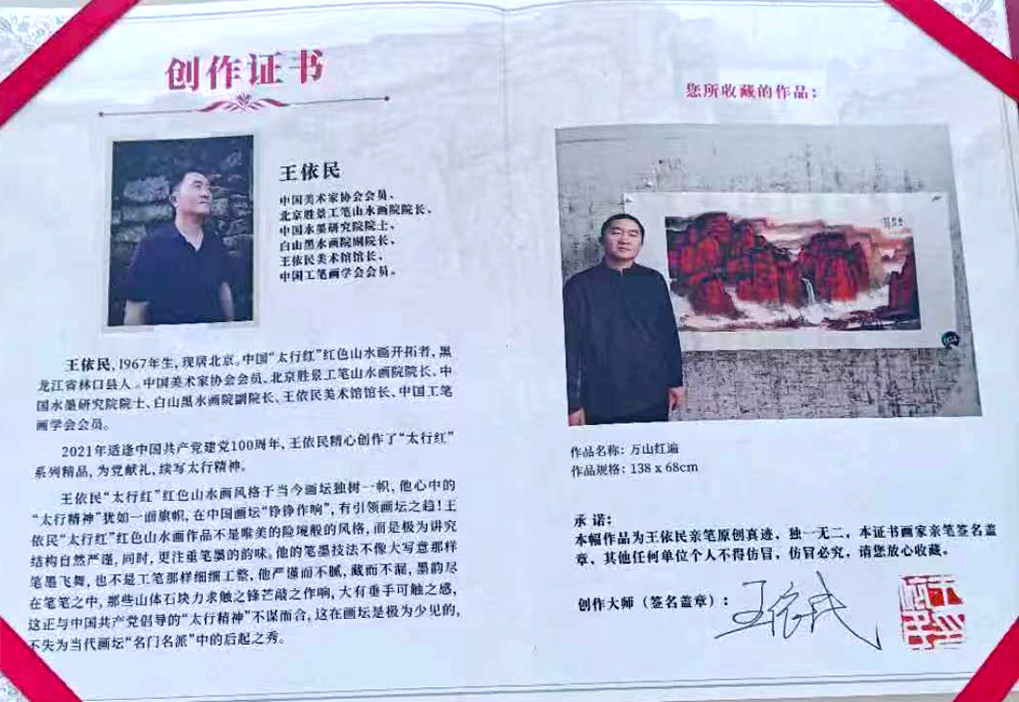 创作证书
王依民
中国美术家协会会员、
北京胜景工笔山水画院院长、
中国水墨研究院院士、
白山黑水画院副院长、
王依民美术馆馆长、
中国工笔画学会会员。
王依民，1967年生，现居北京。中国“太行红”红色山水画开拓者，黑
龙江省林口县人。中国美术家协会会员、北京胜景工笔山水画院院长、中
国水墨研究院院士、白山黑水画院副院长、王依民美术馆馆长、中国工笔
画学会会员。
2021年适逢中国共产党建党100周年，王依民精心创作了“太行红”
系列精品，为党献礼，续写太行精神。
王依民“太行红”红色山水画风格于当今画坛独树一帜，他心中的
“太行精神”犹如一面旗帜，在中国画坛“铮铮作响”，有引领画坛之趋！王
依民“太行红”红色山水画作品不是唯美的险境般的风格，而是极为讲究
结构自然严谨，同时，更注重笔墨的韵味。他的笔墨技法不像大写意那样
笔墨飞舞，也不是工笔那样细细工整，他严谨而不腻，藏而不漏，墨韵尽
在笔笔之中，那些山体石块力求触之锋芒敲之作响，大有垂手可触之感，
这正与中国共产党倡导的“太行精神”不谋而合，这在画坛是极为少见的，
不失为当代画坛“名门名派”中的后起之秀。
您所收藏的作品：
作品名称：万山红遍
作品规格：138 x 68cm
承诺：
本幅作品为王依民亲笔原创真迹，独一无二，本证书画家亲笔签名盖
章，其他任何单位个人不得仿冒，仿冒必究，请您放心收藏。
创作大师（签名盖章）：王依民